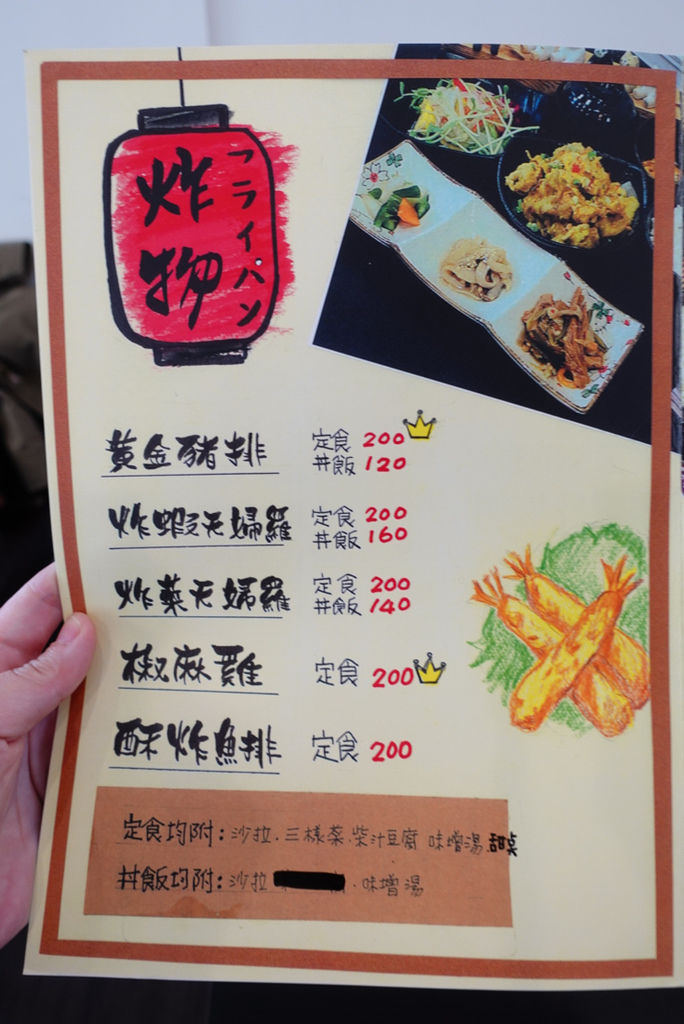 炸物
フライパン
黃金豬排 定食 200
丼飯 120
炸蝦天婦羅 定食 200
丼飯 160
炸蔬天婦羅 定食 200
丼飯 140
椒麻雞 定食 200
酥炸魚排 定食 200
定食均附：沙拉．三樣菜．柴汁豆腐 味增湯．甜桌
丼飯均附：沙拉 ．味增湯